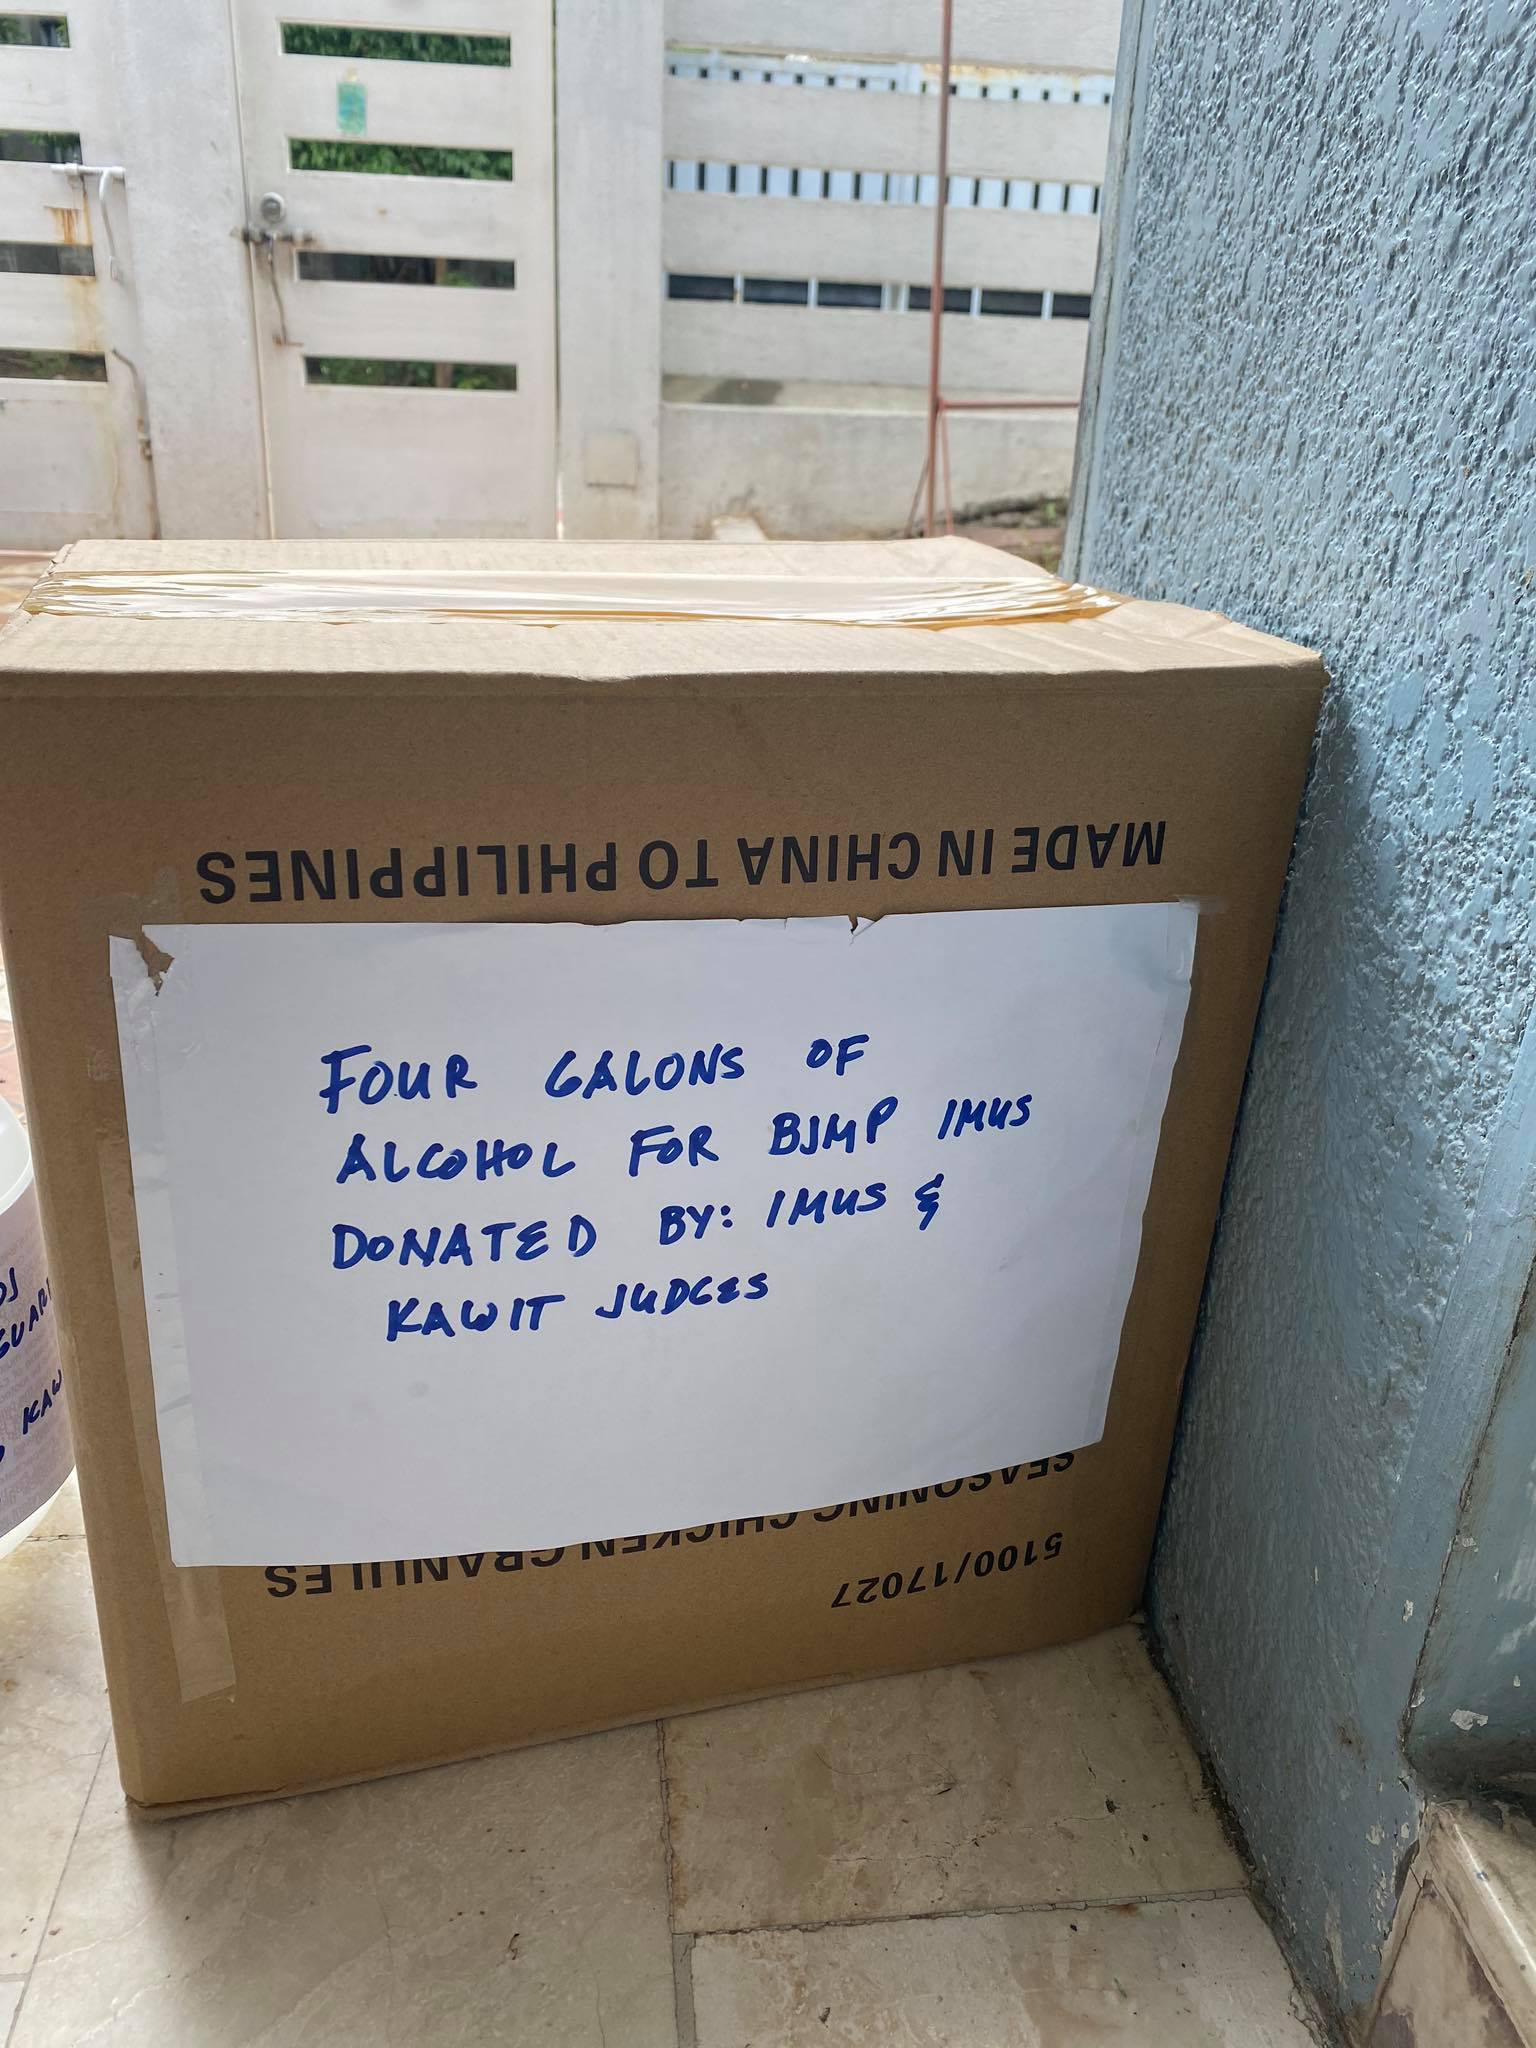 MADE IN CHINA TO PHILIPPINES
FOUR GALONS OF
ALCOHOL FOR BJMP IMUS
DONATED BY: IMUS &
KAWIT JUDGES
SEASONING CHICKEN GRANULES
5100/17027